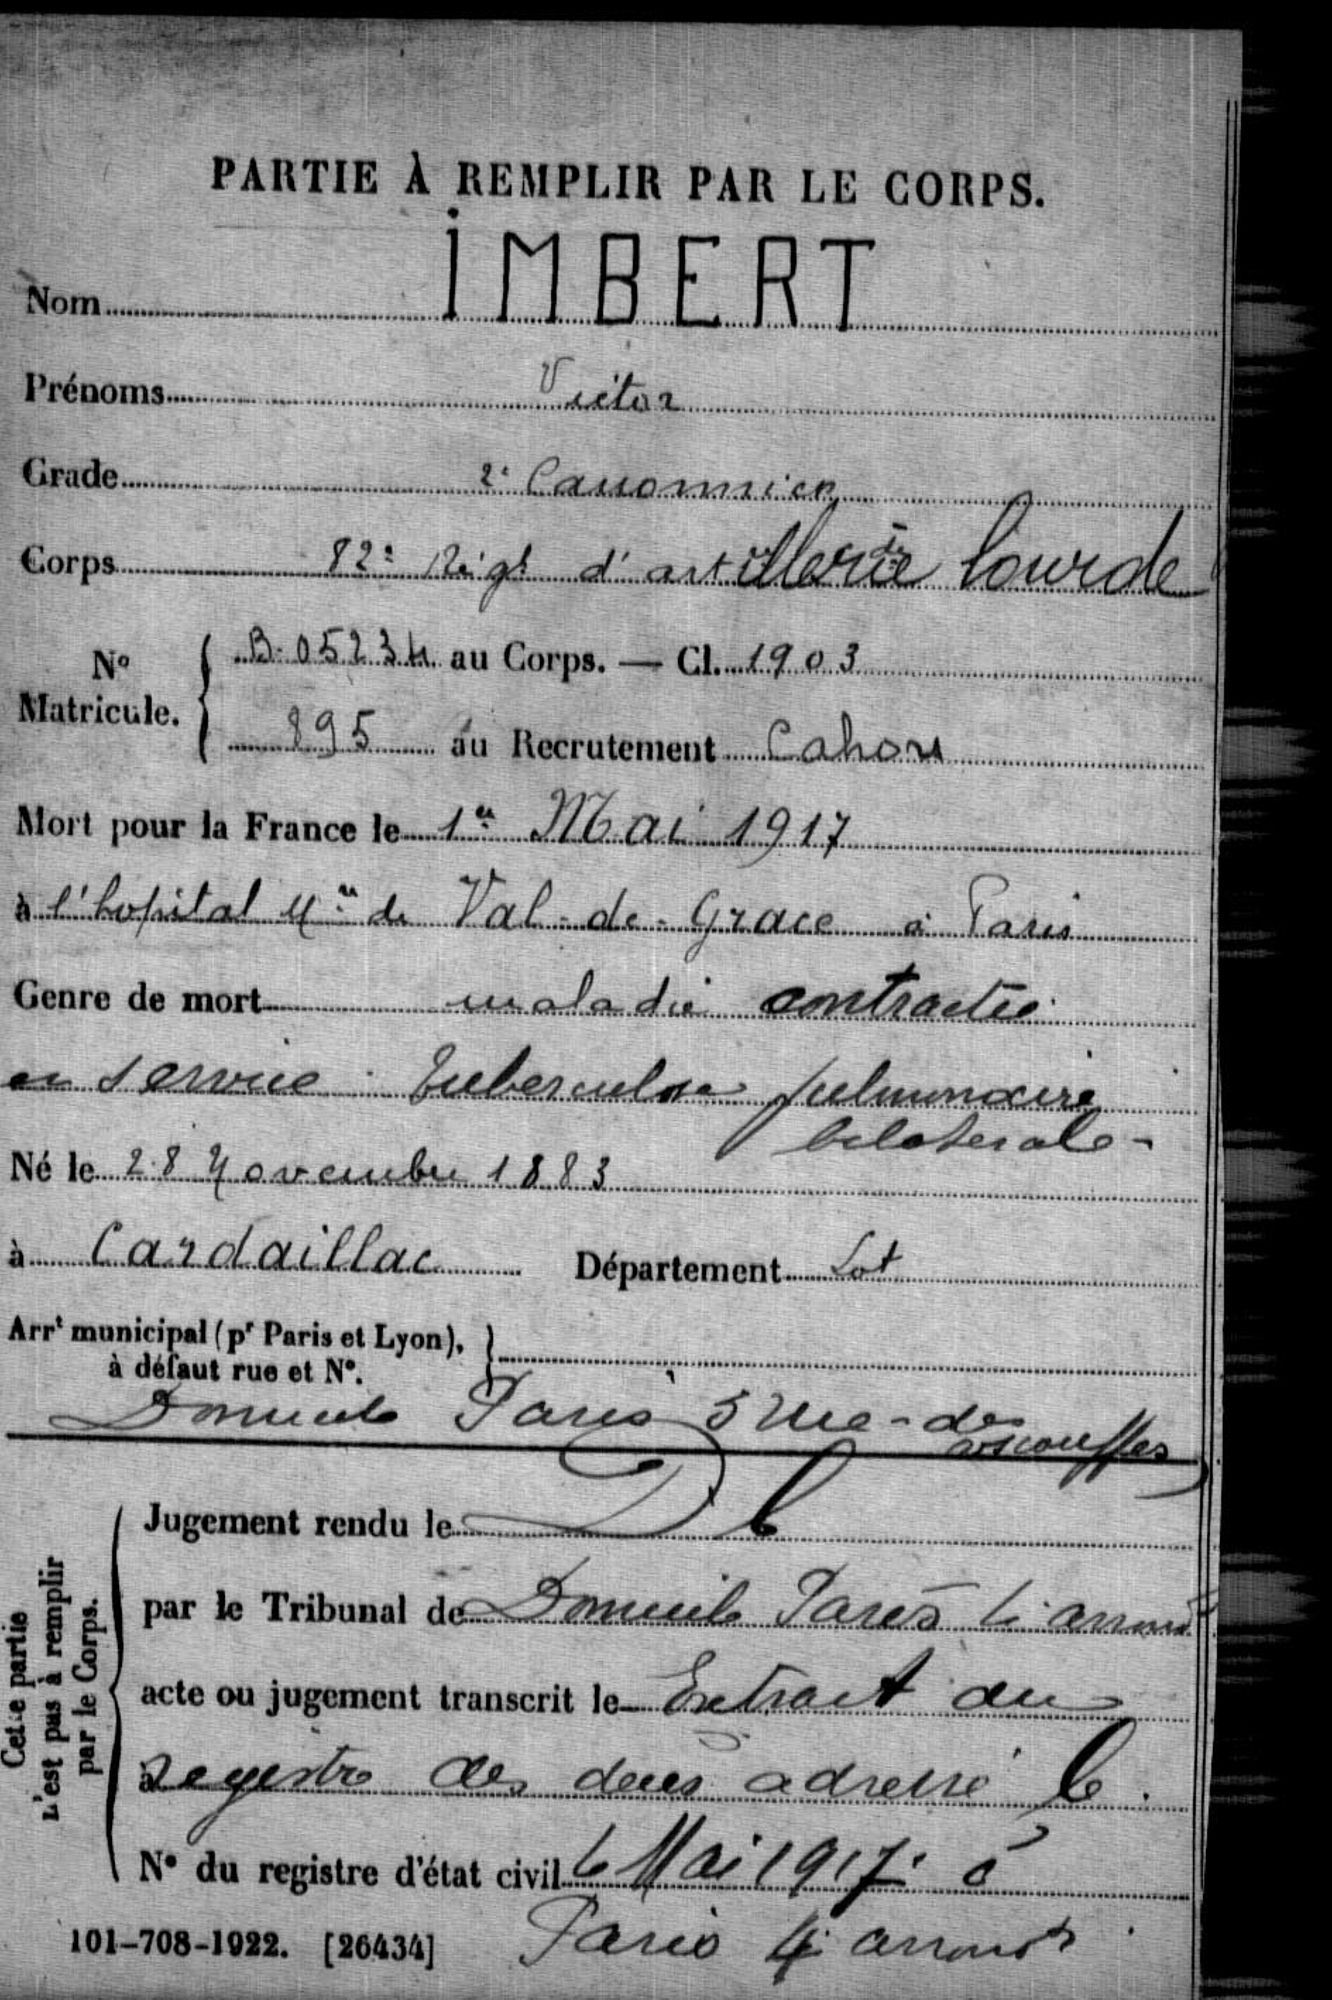 PARTIE À REMPLIR PAR LE CORPS.
Nom IMBERT
Prénoms Victor
Grade 2e Canonnier
Corps 82e Régt d'artillerie lourde
N° Matricule. B.05234 au Corps. — Cl. 1903
895 au Recrutement Cahors
Mort pour la France le 1er Mai 1917
à l'hopital Mre de Val-de-Grace à Paris
Genre de mort maladie contractée
en service. Tuberculose pulmonaire
bilaterale -
Né le 28 Novembre 1883
à Cardaillac Département Lot
Arrt municipal (pr Paris et Lyon), à défaut rue et N°.
Domicile Paris 5 rue - des
escouffes
Jugement rendu le
par le Tribunal de Domicile Paris
acte ou jugement transcrit le Extrait du
à registre des deces adressé le
N° du registre d'état civil 6 Mai 1917. à
Paris 4e arrondt
Cette partie n'est pas à remplir par le Corps.
101-708-1922. [26434]